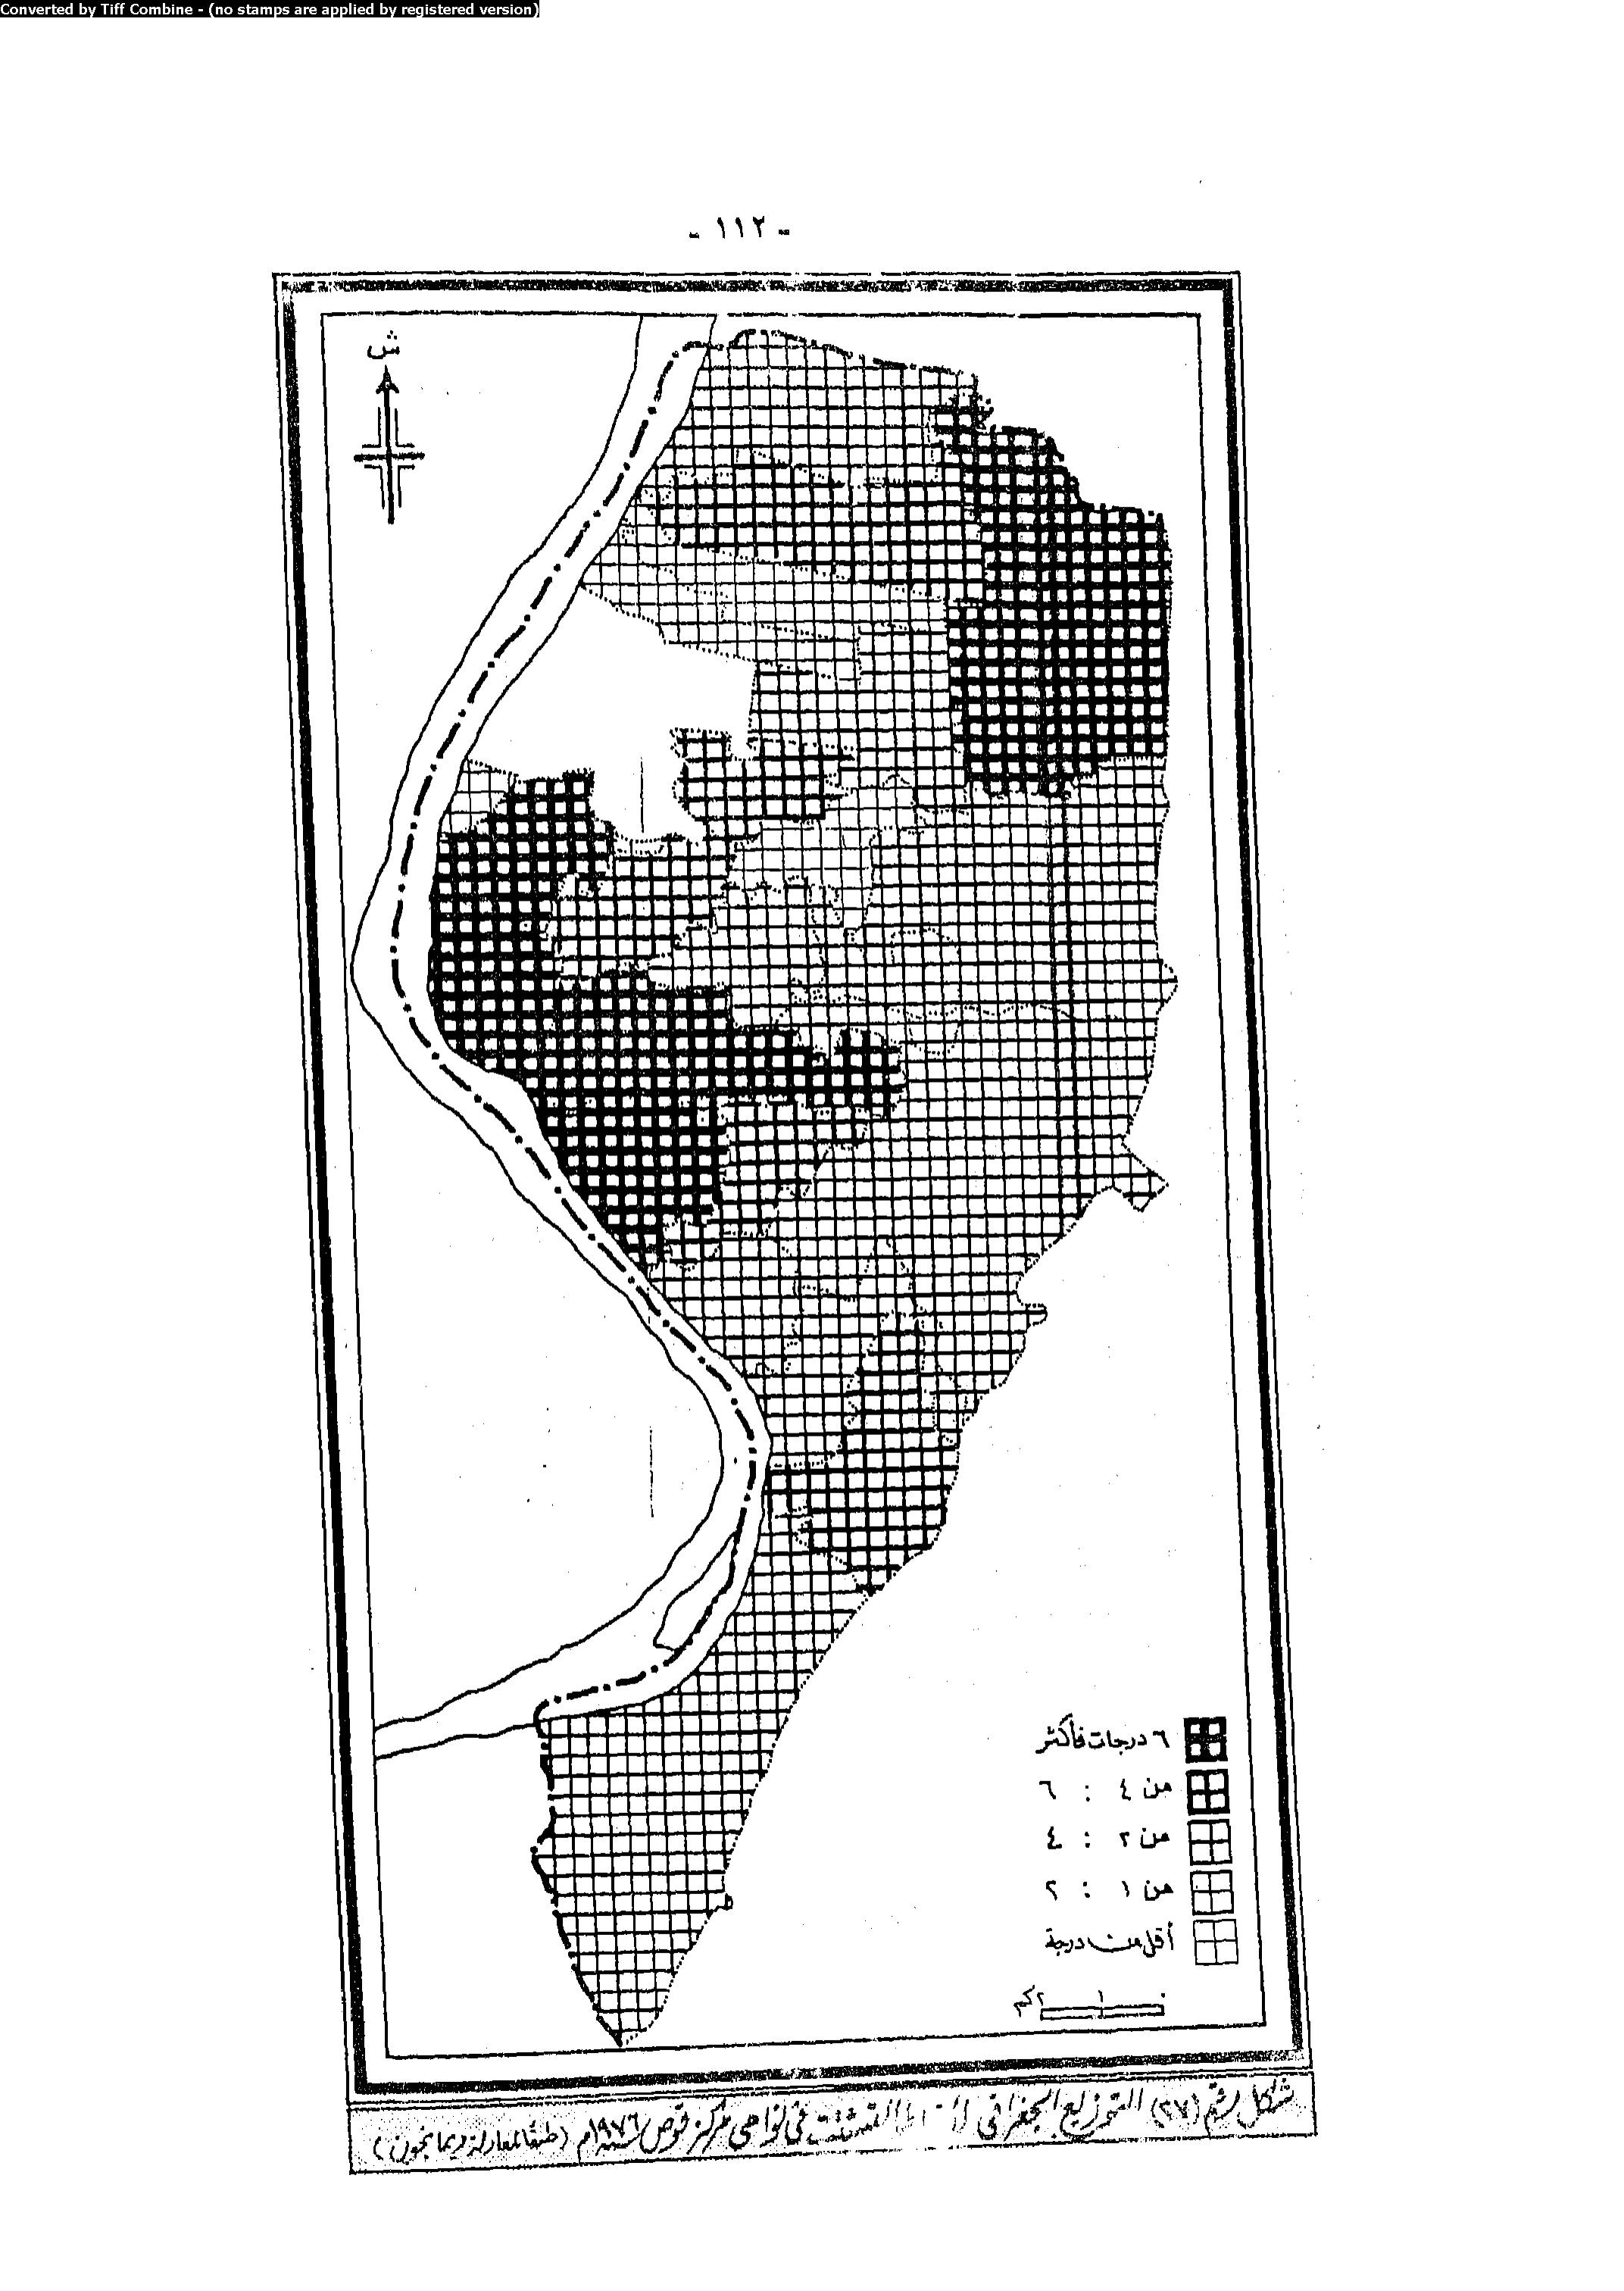 Converted by Tiff Combine - (no stamps are applied by registered version)
- ١١٢ -
ش
٦ درجات فأكثر
من ٤ : ٦
من ٢ : ٤
من ١ : ٢
أقل من درجة
٠ ١ ٢كم
شكل رقم (٢٧) التوزيع الجغرافى التشتت فى نواحى مركز قوص سنة ١٩٧٦م (طبقا لمعادلة ديمانجون)